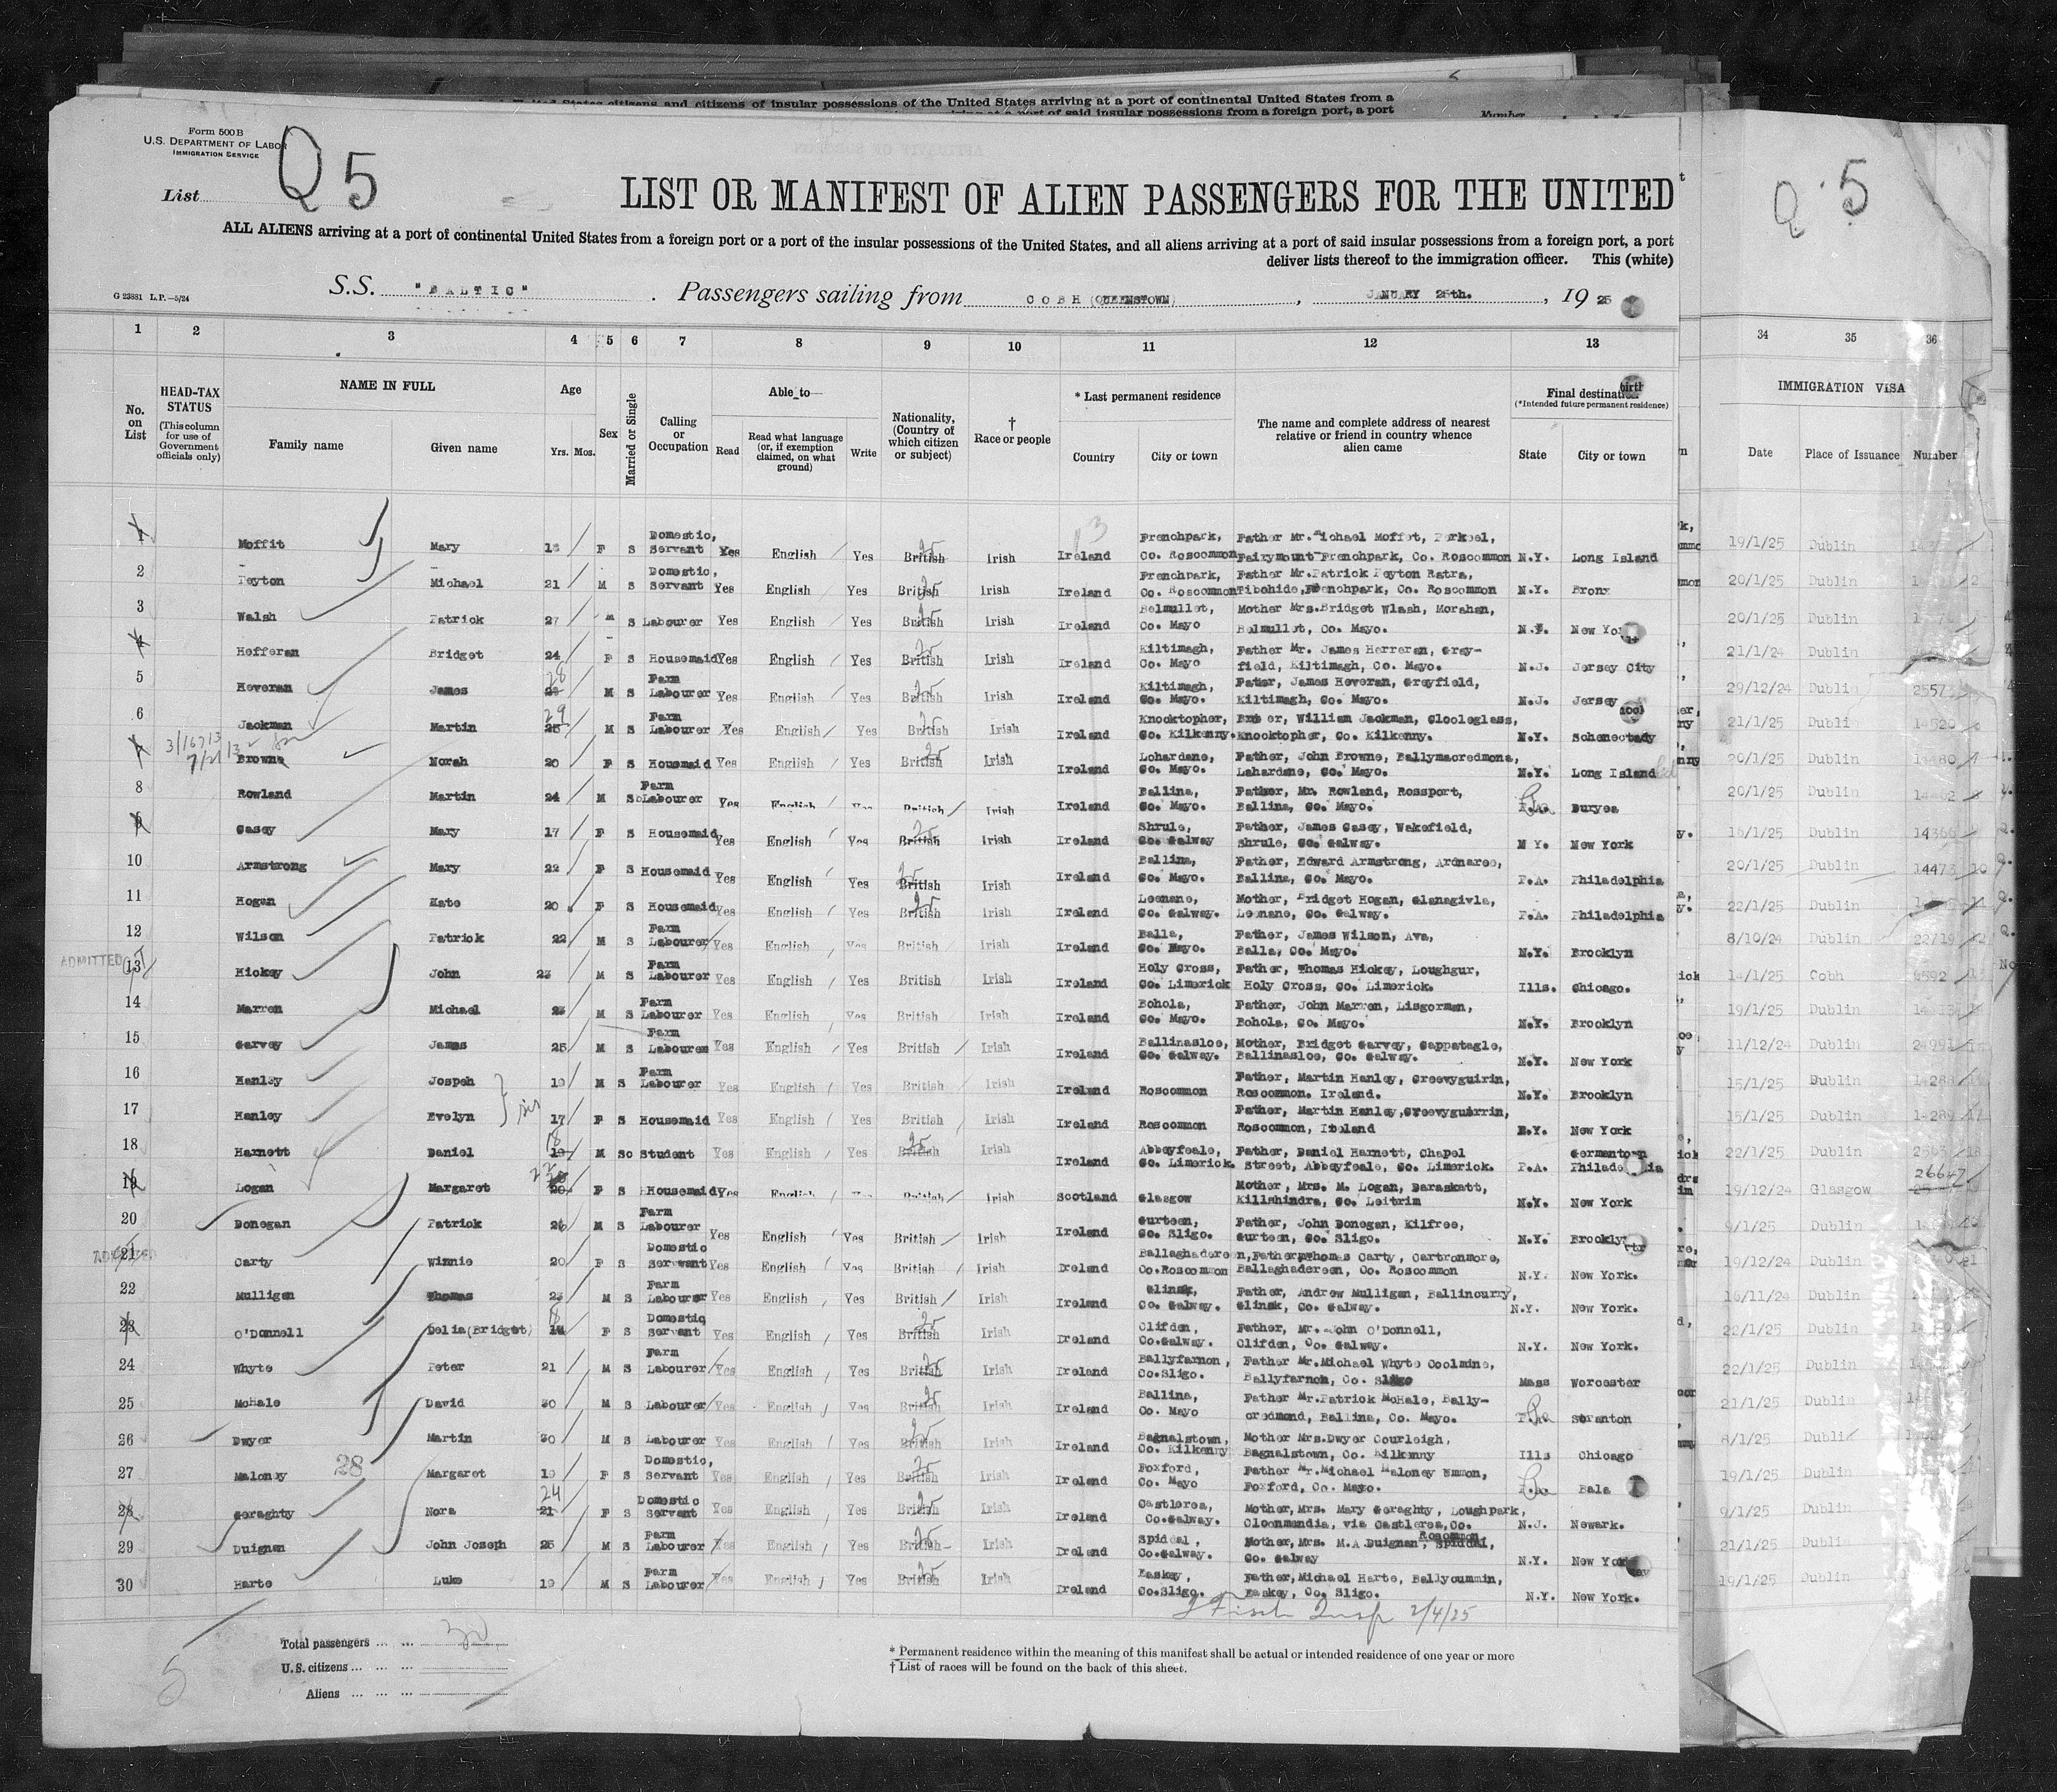 United States citizens and citizens of insular possessions of the United States arriving at a port of continental United States from a
at a port of said insular possessions from a foreign port, a port
Number
Form 500 B
U.S. DEPARTMENT OF LABOR
IMMIGRATION SERVICE
List Q 5
LIST OR MANIFEST OF ALIEN PASSENGERS FOR THE UNITED
Q 5
ALL ALIENS arriving at a port of continental United States from a foreign port or a port of the insular possessions of the United States, and all aliens arriving at a port of said insular possessions from a foreign port, a port
deliver lists thereof to the immigration officer. This (white)
G 23881 L.P.—5/24
S.S. "BALTIC" . Passengers sailing from COBH (QUEENSTOWN) , JANUARY 25th. , 19 25
1 2 3 4 5 6 7 8 9 10 11 12 13 34 35 36
No. on List
HEAD-TAX STATUS
(This column for use of Government officials only)
NAME IN FULL
Family name Given name
Age
Yrs. Mos.
Sex
Married or Single
Calling or Occupation
Able to—
Read Read what language (or, if exemption claimed, on what ground) Write
Nationality, (Country of which citizen or subject)
† Race or people
* Last permanent residence
Country City or town
The name and complete address of nearest relative or friend in country whence alien came
Final destination
(*Intended future permanent residence)
State City or town
IMMIGRATION VISA
Date Place of Issuance Number
1 Moffit Mary F S Domestic, Servant Yes English Yes British Irish Ireland Frenchpark, Co. Roscommon Father Mr. Michael Moffet, Fairymount Frenchpark, Co. Roscommon N.Y. Long Island 19/1/25 Dublin
2 Peyton Michael 21 M S Domestic, Servant Yes English Yes British Irish Ireland Frenchpark, Co. Roscommon Father Mr.Patrick Peyton Ratra, Tibohide, Frenchpark, Co. Roscommon N.Y. Bronx 20/1/25 Dublin
3 Walsh Patrick 27 M S Labourer Yes English Yes British Irish Ireland Belmullet, Co. Mayo Mother Mrs.Bridget Wlash, Morahan, Belmullet, Co. Mayo. N.Y. New York 20/1/25 Dublin
4 Hefferan Bridget 24 F S Housemaid Yes English Yes British Irish Ireland Kiltimagh, Co. Mayo Father Mr. James Herreran, Grey- field, Kiltimagh, Co. Mayo. N.J. Jersey City 21/1/24 Dublin
5 Heveran James 28 M S Farm Labourer Yes English Yes British Irish Ireland Kiltimagh, Co. Mayo. Father, James Heveran, Greyfield, Kiltimagh, Co. Mayo. N.J. Jersey 29/12/24 Dublin
6 Jackman Martin 29 25 M S Farm Labourer Yes English Yes British Irish Ireland Knocktopher, Co. Kilkenny. William Jackman, Clooleglass, Knocktopher, Co. Kilkenny. N.Y. Schenectady 21/1/25 Dublin 14520
7 Browne Norah 20 F S Housmaid Yes English Yes British Irish Ireland Lahardane, Co. Mayo. Father, John Browne, Ballymacredmona, Lahardane, Co. Mayo. N.Y. Long Island 20/1/25 Dublin 14480
8 Rowland Martin 24 M S Farm Labourer Yes English Yes British Irish Ireland Ballina, Co. Mayo. Father, Mr. Rowland, Rossport, Ballina, Co. Mayo. P.A. Duryea 20/1/25 Dublin 14462
9 Casey Mary 17 F S Housemaid Yes English Yes British Irish Ireland Shrule, Co. Galway Father, James Casey, Wakefield, Shrule, Co. Galway. N Y. New York 16/1/25 Dublin 14366
10 Armstrong Mary 22 F S Housemaid Yes English Yes British Irish Ireland Ballina, Co. Mayo. Father, Edward Armstrong, Ardnaree, Ballina, Co. Mayo. P.A. Philadelphia 20/1/25 Dublin 14473 10
11 Hogan Kate 20 F S Housemaid Yes English Yes British Irish Ireland Leenane, Co. Galway. Mother, Bridget Hogan, Glanagivla, Leenane, Co. Galway. P.A. Philadelphia 22/1/25 Dublin
12 Wilson Patrick 22 M S Farm Labourer Yes English Yes British Irish Ireland Balla, Co. Mayo. Father, James Wilson, Ava, Balla, Co. Mayo. N.Y. Brooklyn 8/10/24 Dublin 22719 12
ADMITTED
13 Hickey John 23 M S Farm Labourer Yes English Yes British Irish Ireland Holy Cross, Co. Limerick Father, Thomas Hickey, Loughgur, Holy Cross, Co. Limerick. Ills. Chicago. 14/1/25 Cobh
14 Marren Michael 23 M S Farm Labourer Yes English Yes British Irish Ireland Bohola, Co. Mayo. Father, John Marren, Lisgorman, Bohola, Co. Mayo. N.Y. Brooklyn 19/1/25 Dublin
15 Garvey James 25 M S Farm Labourer Yes English Yes British Irish Ireland Ballinasloe, Co. Galway. Mother, Bridget Garvey, Cappatagle, Ballinasloe, Co. Galway. N.Y. New York 11/12/24 Dublin 24991
16 Hanley Jospeh 19 M S Farm Labourer Yes English Yes British Irish Ireland Roscommon Father, Martin Hanley, Creevyguirin, Roscommon. Ireland. N.Y. Brooklyn 15/1/25 Dublin 14288
17 Hanley Evelyn 17 F S Housemaid Yes English Yes British Irish Ireland Roscommon Father, Martin Hanley, Creevyguirrin, Roscommon, Ireland N.Y. New York 15/1/25 Dublin 14289 17
18 Harnett Daniel 18 19 M S Student Yes English Yes British Irish Ireland Abbeyfeale, Co. Limerick. Father, Daniel Harnett, Chapel Street, Abbeyfeale, Co. Limerick. P.A. Germantown Philadelphia 22/1/25 Dublin 18
19 Logan Margaret 22 F S Housemaid Yes English Yes British Irish Scotland Glasgow Mother, Mrs. M. Logan, Daraskatt, Killshindra, Co. Leitrim N.Y. New York 19/12/24 Glasgow 26647
20 Donegan Patrick 26 M S Farm Labourer Yes English Yes British Irish Ireland Gurteen, Co. Sligo. Father, John Donegan, Kilfree, Gurteen, Co. Sligo. N.Y. Brooklyn 9/1/25 Dublin
21 Carty Winnie 20 F S Domestic Servant Yes English Yes British Irish Ireland Ballaghadereen, Co.Roscommon Father, Thomas Carty, Cartronmore, Ballaghadereen, Co. Roscommon N.Y. New York. 19/12/24 Dublin
22 Mulligan Thomas 23 M S Farm Labourer Yes English Yes British Irish Ireland Glinsk, Co. Galway. Father, Andrew Mulligan, Ballincurry, Glinsk, Co. Galway. N.Y. New York. 16/11/24 Dublin
23 O'Donnell Delia(Bridget) 18 F S Domestic Servant Yes English Yes British Irish Ireland Clifden, Co.Galway. Father, Mr. John O'Donnell, Clifden, Co. Galway. N.Y. New York. 22/1/25 Dublin
24 Whyte Peter 21 M S Farm Labourer Yes English Yes British Irish Ireland Ballyfarnon, Co.Sligo. Father Mr.Michael Whyte Coolmine, Ballyfarnon, Co. Sligo Mass Worcester 22/1/25 Dublin
25 McHale David 30 M S Labourer Yes English Yes British Irish Ireland Ballina, Co. Mayo Father Mr.Patrick McHale, Bally- credmond, Ballina, Co. Mayo. P.A. Scranton 21/1/25 Dublin
26 Dwyer Martin 30 M S Labourer Yes English Yes British Irish Ireland Bagnalstown, Co. Kilkenny Mother Mrs.Dwyer Courleigh, Bagnalstown, Co. Kilkenny Ills Chicago 8/1/25 Dublin
27 Maloney 28 Margaret 19 F S Domestic, Servant Yes English Yes British Irish Ireland Foxford, Co. Mayo Father Mr.Michael Maloney Ummon, Foxford, Co. Mayo. Bala 19/1/25 Dublin
28 Geraghty Nora 24 21 F S Domestic Servant Yes English Yes British Irish Ireland Castlerea, Co.Galway. Mother, Mrs. Mary Geraghty, Loughpark, Cloonmandia, via Castlerea, Co. Roscommon N.J. Newark. 9/1/25 Dublin
29 Duignan John Joseph 25 M S Farm Labourer Yes English Yes British Irish Ireland Spiddal, Co.Galway. Mother, Mrs. M.A Duignan, Spiddal, Co. Galway N.Y. New York 21/1/25 Dublin
30 Harte Luke 19 M S Farm Labourer Yes English Yes British Irish Ireland Easkey, Co.Sligo. Father, Michael Harte, Ballycummin, Easkey, Co. Sligo. N.Y. New York. 19/1/25 Dublin
Fisch Insp 2/4/25
Total passengers ... ... 30
U.S. citizens ... ... ...
Aliens ... ... ...
5
* Permanent residence within the meaning of this manifest shall be actual or intended residence of one year or more
† List of races will be found on the back of this sheet.